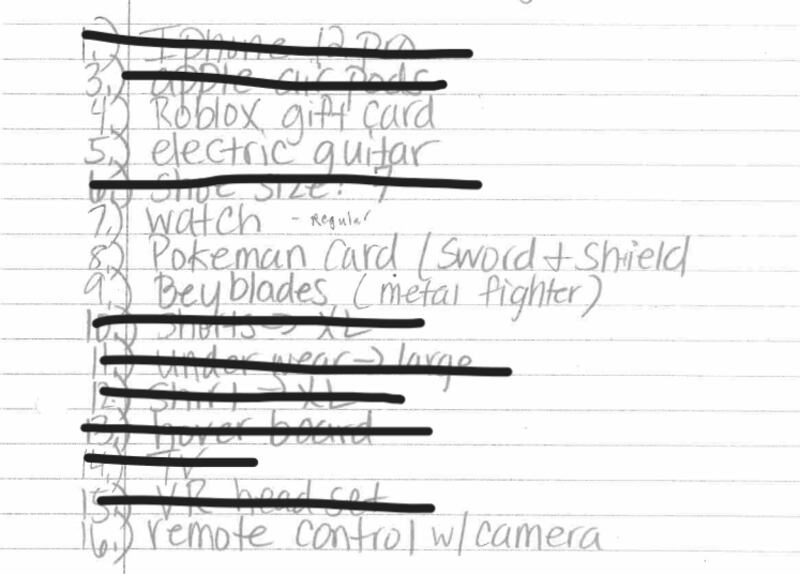 1.) Iphone 12 Pro
3.) apple air pods
4.) Roblox gift card
5.) electric guitar
6.) Shoe size: 7
7.) watch - Regular
8.) Pokeman Card / Sword + Shield
9.) Beyblades (metal fighter)
10.) Shorts → XL
11.) under wear → large
12.) Shirt → XL
13.) hover board
14.) TV
15.) VR head set
16.) remote control w/ camera